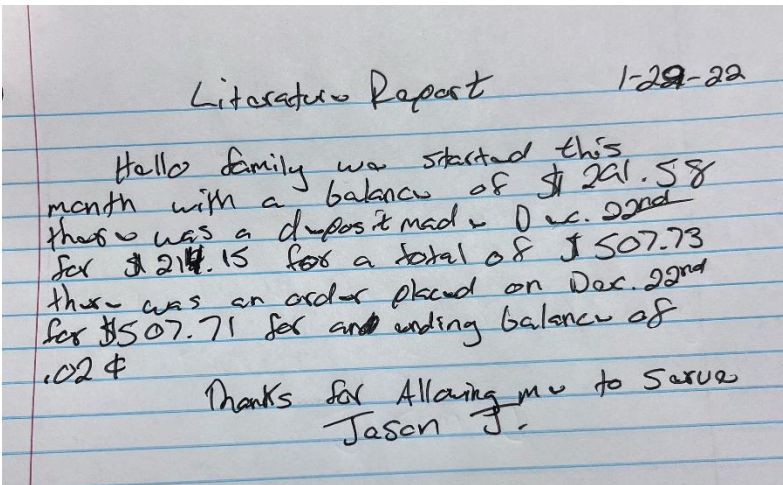 Literature Report 1-29-22
Hello family we started this
month with a balance of $291.58
there was a deposit made Dec. 22nd
for for a total of $507.73
there was an order placed on Dec. 22nd
for $507.71 for an ending balance of
.02¢
Thanks for Allowing me to Serve
Jason J.